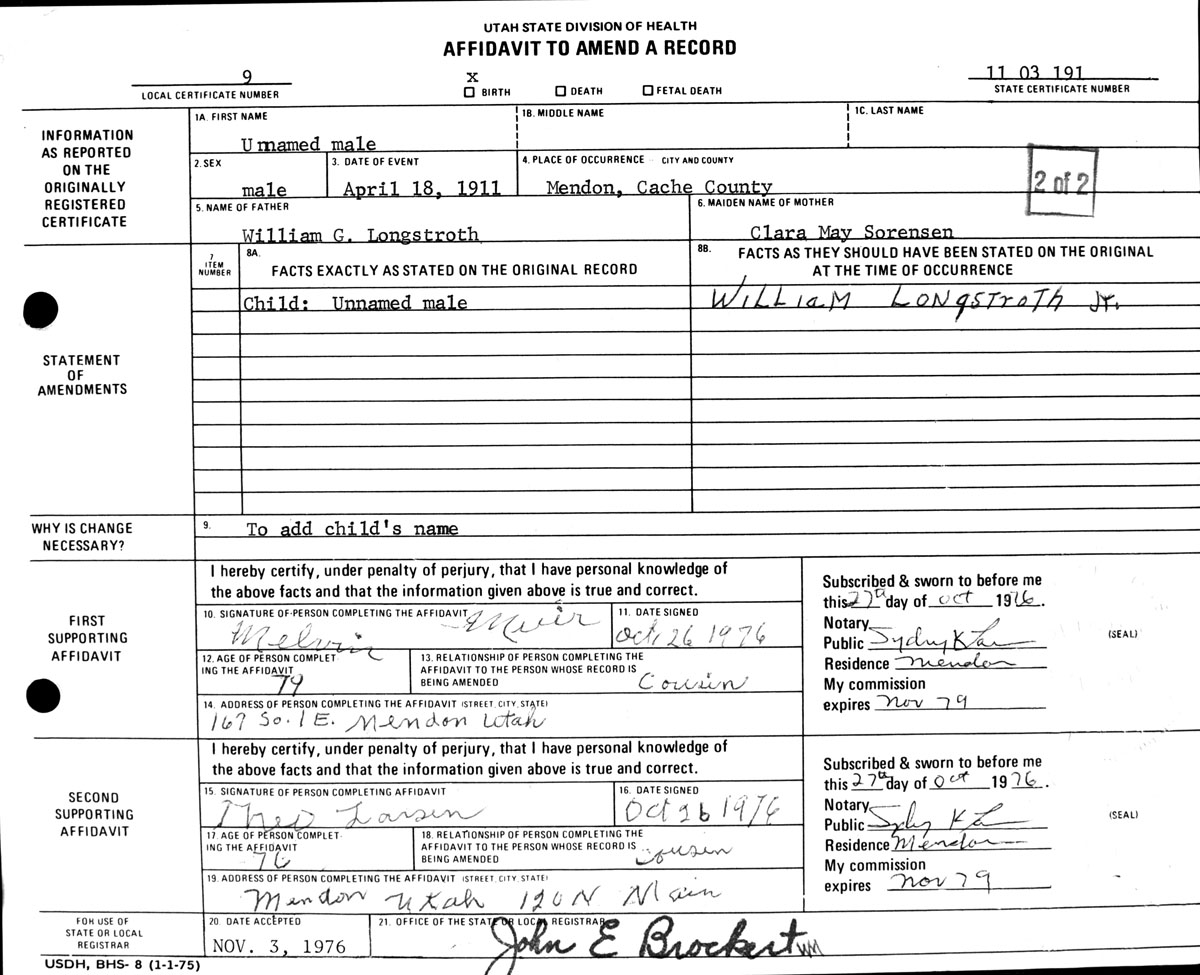 UTAH STATE DIVISION OF HEALTH
AFFIDAVIT TO AMEND A RECORD
9
LOCAL CERTIFICATE NUMBER
X
☐ BIRTH ☐ DEATH ☐ FETAL DEATH
11 03 191
STATE CERTIFICATE NUMBER
INFORMATION
AS REPORTED
ON THE
ORIGINALLY
REGISTERED
CERTIFICATE
1A. FIRST NAME
Unnamed male
1B. MIDDLE NAME
1C. LAST NAME
2. SEX
male
3. DATE OF EVENT
April 18, 1911
4. PLACE OF OCCURRENCE - CITY AND COUNTY
Mendon, Cache County
2 of 2
5. NAME OF FATHER
William G. Longstroth
6. MAIDEN NAME OF MOTHER
Clara May Sorensen
STATEMENT
OF
AMENDMENTS
7
ITEM
NUMBER
8A.
FACTS EXACTLY AS STATED ON THE ORIGINAL RECORD
8B.
FACTS AS THEY SHOULD HAVE BEEN STATED ON THE ORIGINAL
AT THE TIME OF OCCURRENCE
Child: Unnamed male
WILLIAM LONGSTROTH Jr.
WHY IS CHANGE
NECESSARY?
9. To add child's name
FIRST
SUPPORTING
AFFIDAVIT
I hereby certify, under penalty of perjury, that I have personal knowledge of
the above facts and that the information given above is true and correct.
10. SIGNATURE OF PERSON COMPLETING THE AFFIDAVIT
Melvin Muir
11. DATE SIGNED
Oct, 26 1976
12. AGE OF PERSON COMPLET-
ING THE AFFIDAVIT
79
13. RELATIONSHIP OF PERSON COMPLETING THE
AFFIDAVIT TO THE PERSON WHOSE RECORD IS
BEING AMENDED
Cousin
14. ADDRESS OF PERSON COMPLETING THE AFFIDAVIT (STREET, CITY, STATE)
167 So. 1 E. Mendon Utah
Subscribed & sworn to before me
this 27th day of Oct 1976.
Notary
Public Sydney K
Residence Mendon
My commission
expires Nov 79
(SEAL)
SECOND
SUPPORTING
AFFIDAVIT
I hereby certify, under penalty of perjury, that I have personal knowledge of
the above facts and that the information given above is true and correct.
15. SIGNATURE OF PERSON COMPLETING AFFIDAVIT
Theo Larsen
16. DATE SIGNED
Oct 26 1976
17. AGE OF PERSON COMPLET-
ING THE AFFIDAVIT
76
18. RELATIONSHIP OF PERSON COMPLETING THE
AFFIDAVIT TO THE PERSON WHOSE RECORD IS
BEING AMENDED
Cousen
19. ADDRESS OF PERSON COMPLETING THE AFFIDAVIT (STREET, CITY, STATE)
Mendon Utah 120 N Main
Subscribed & sworn to before me
this 27th day of Oct 1976.
Notary
Public K
Residence Mendon
My commission
expires Nov 79
(SEAL)
FOR USE OF
STATE OR LOCAL
REGISTRAR
20. DATE ACCEPTED
NOV. 3, 1976
21. OFFICE OF THE STATE OR LOCAL REGISTRAR
John E Brockert
USDH, BHS- 8 (1-1-75)